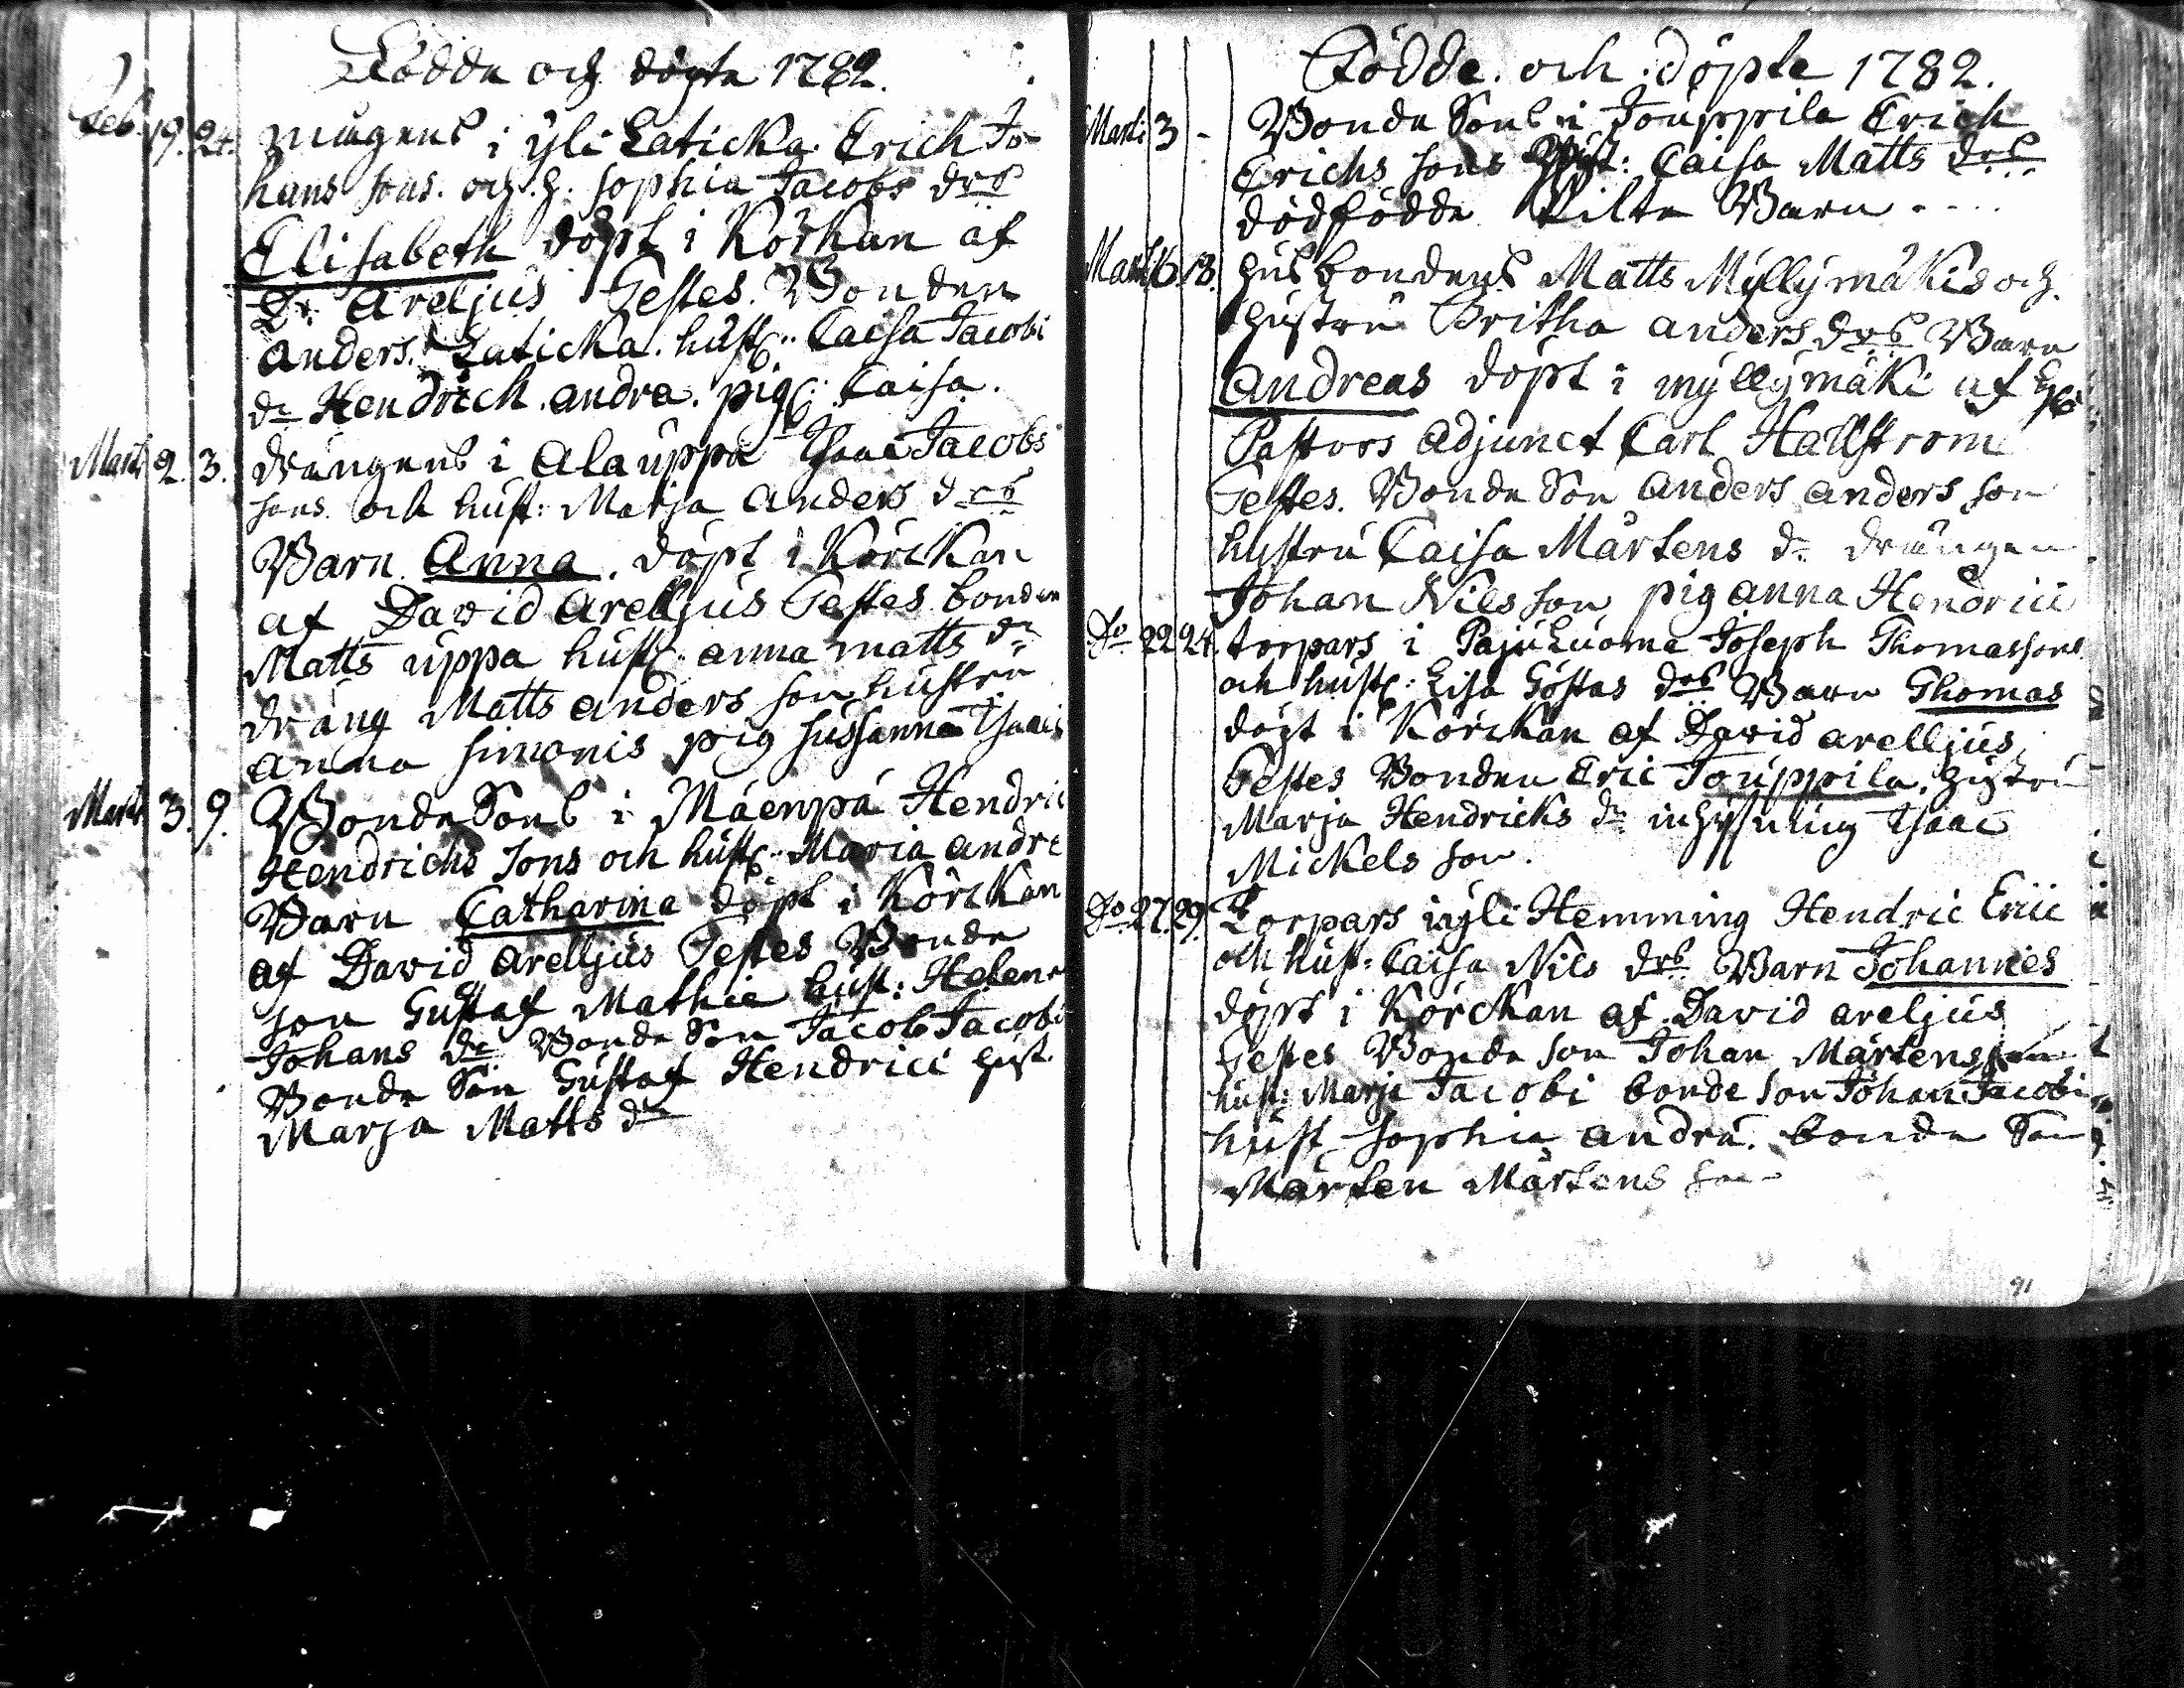 Födde och döpte 1782.
Feb. 19. 24. mågens i ÿli Laticka Erich Jo-
hans sons. och h. sophia Jacobs drs
Elisabeth döpt i Körkan af
Dr. Areljus Testes. Bonden
anders Laticka. hust: Caisa Jacobi
dr Hendrich andra. pig: Caisa.
Marti 2. 3. drängens i Alauppa Isaac Jacobs
sons och hust: Marja Anders drs
Barn Anna. döpt i Körckan
af David Arelljus Testes bonden
Matts uppa hust: anna matts dr
dräng Matts anders son hustru
anna simonis pig sussanna Isaacs
Marti 3. 9. Bonde Sons i Mäenpä Hendric
Hendrichs Sons och hust: Maria andre
Barn Catharina döpt i Körckan
af David Arelljus Testes Bonde
son Gustaf Mathie hust: Helena
Johans dr Bonde Son Jacob Jacobi
Bonde Son Gustaf Hendrici hust.
Marja Matts dr
Födde och döpte 1782.
Marti 3 - Bonde Sons i Jouppila Erich
Erichs sons Hust: Caisa Matts drs
dödfödde Pilte Barn
Marti 16. 18. husbondens Matts Myllymäkis och
hustru Britha anders drs Barn
Andreas döpt i myllymäki af
Pastors Adjunct Carl Hallstrom
Testes. Bonde Son Anders anders son
hustru Caisa Mårtens dr drängen
Johan Nilsson pig anna Hendrici
Do 22 24. torpars i Pajuluoma Joseph Thomassons
och hust: Lisa Göstas drs Barn Thomas
döpt i Körckan af David arelljus,
Testes Bonden Eric Jouppila, hustru
Marja Hendricks dr inhysning Isaac
Mickels son.
Do 27. 29. Torpars i ÿli Hemming Hendric Eric
och hust: Caisa Nils drs Barn Johannes
döpt i Körckan af David areljus
Testes Bonde son Johan Mårtensson
hust: Marja Jacobi bonde son Johan Jacobi
hust sophia andra. bonde Son
Mårten Mårtens son
91